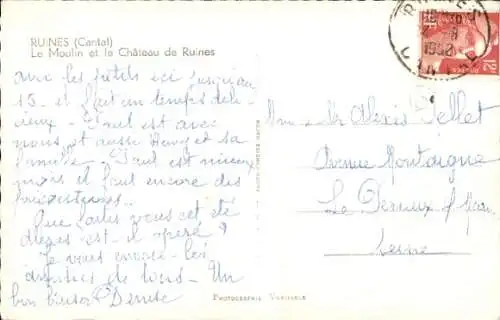 RUINES (Cantal)
Le Moulin et le Château de Ruines
avec les petits ici jusqu'au
15 - il fait un temps déli-
cieux. Paul est avec
nous et aussi Henry et sa
famille. Paul est mieux
mais il faut encore des
précautions.
Que faites vous cet été
est - il opéré ?
Je vous envoie les
amitiés de tous. Un
bon baiser Denise
Mme Alexis Pellet
Avenue Montaigne
Le Perreux s/ Marne
Seine
RUINES
CANTAL
12F
PHOTOGRAPHIE VÉRITABLE